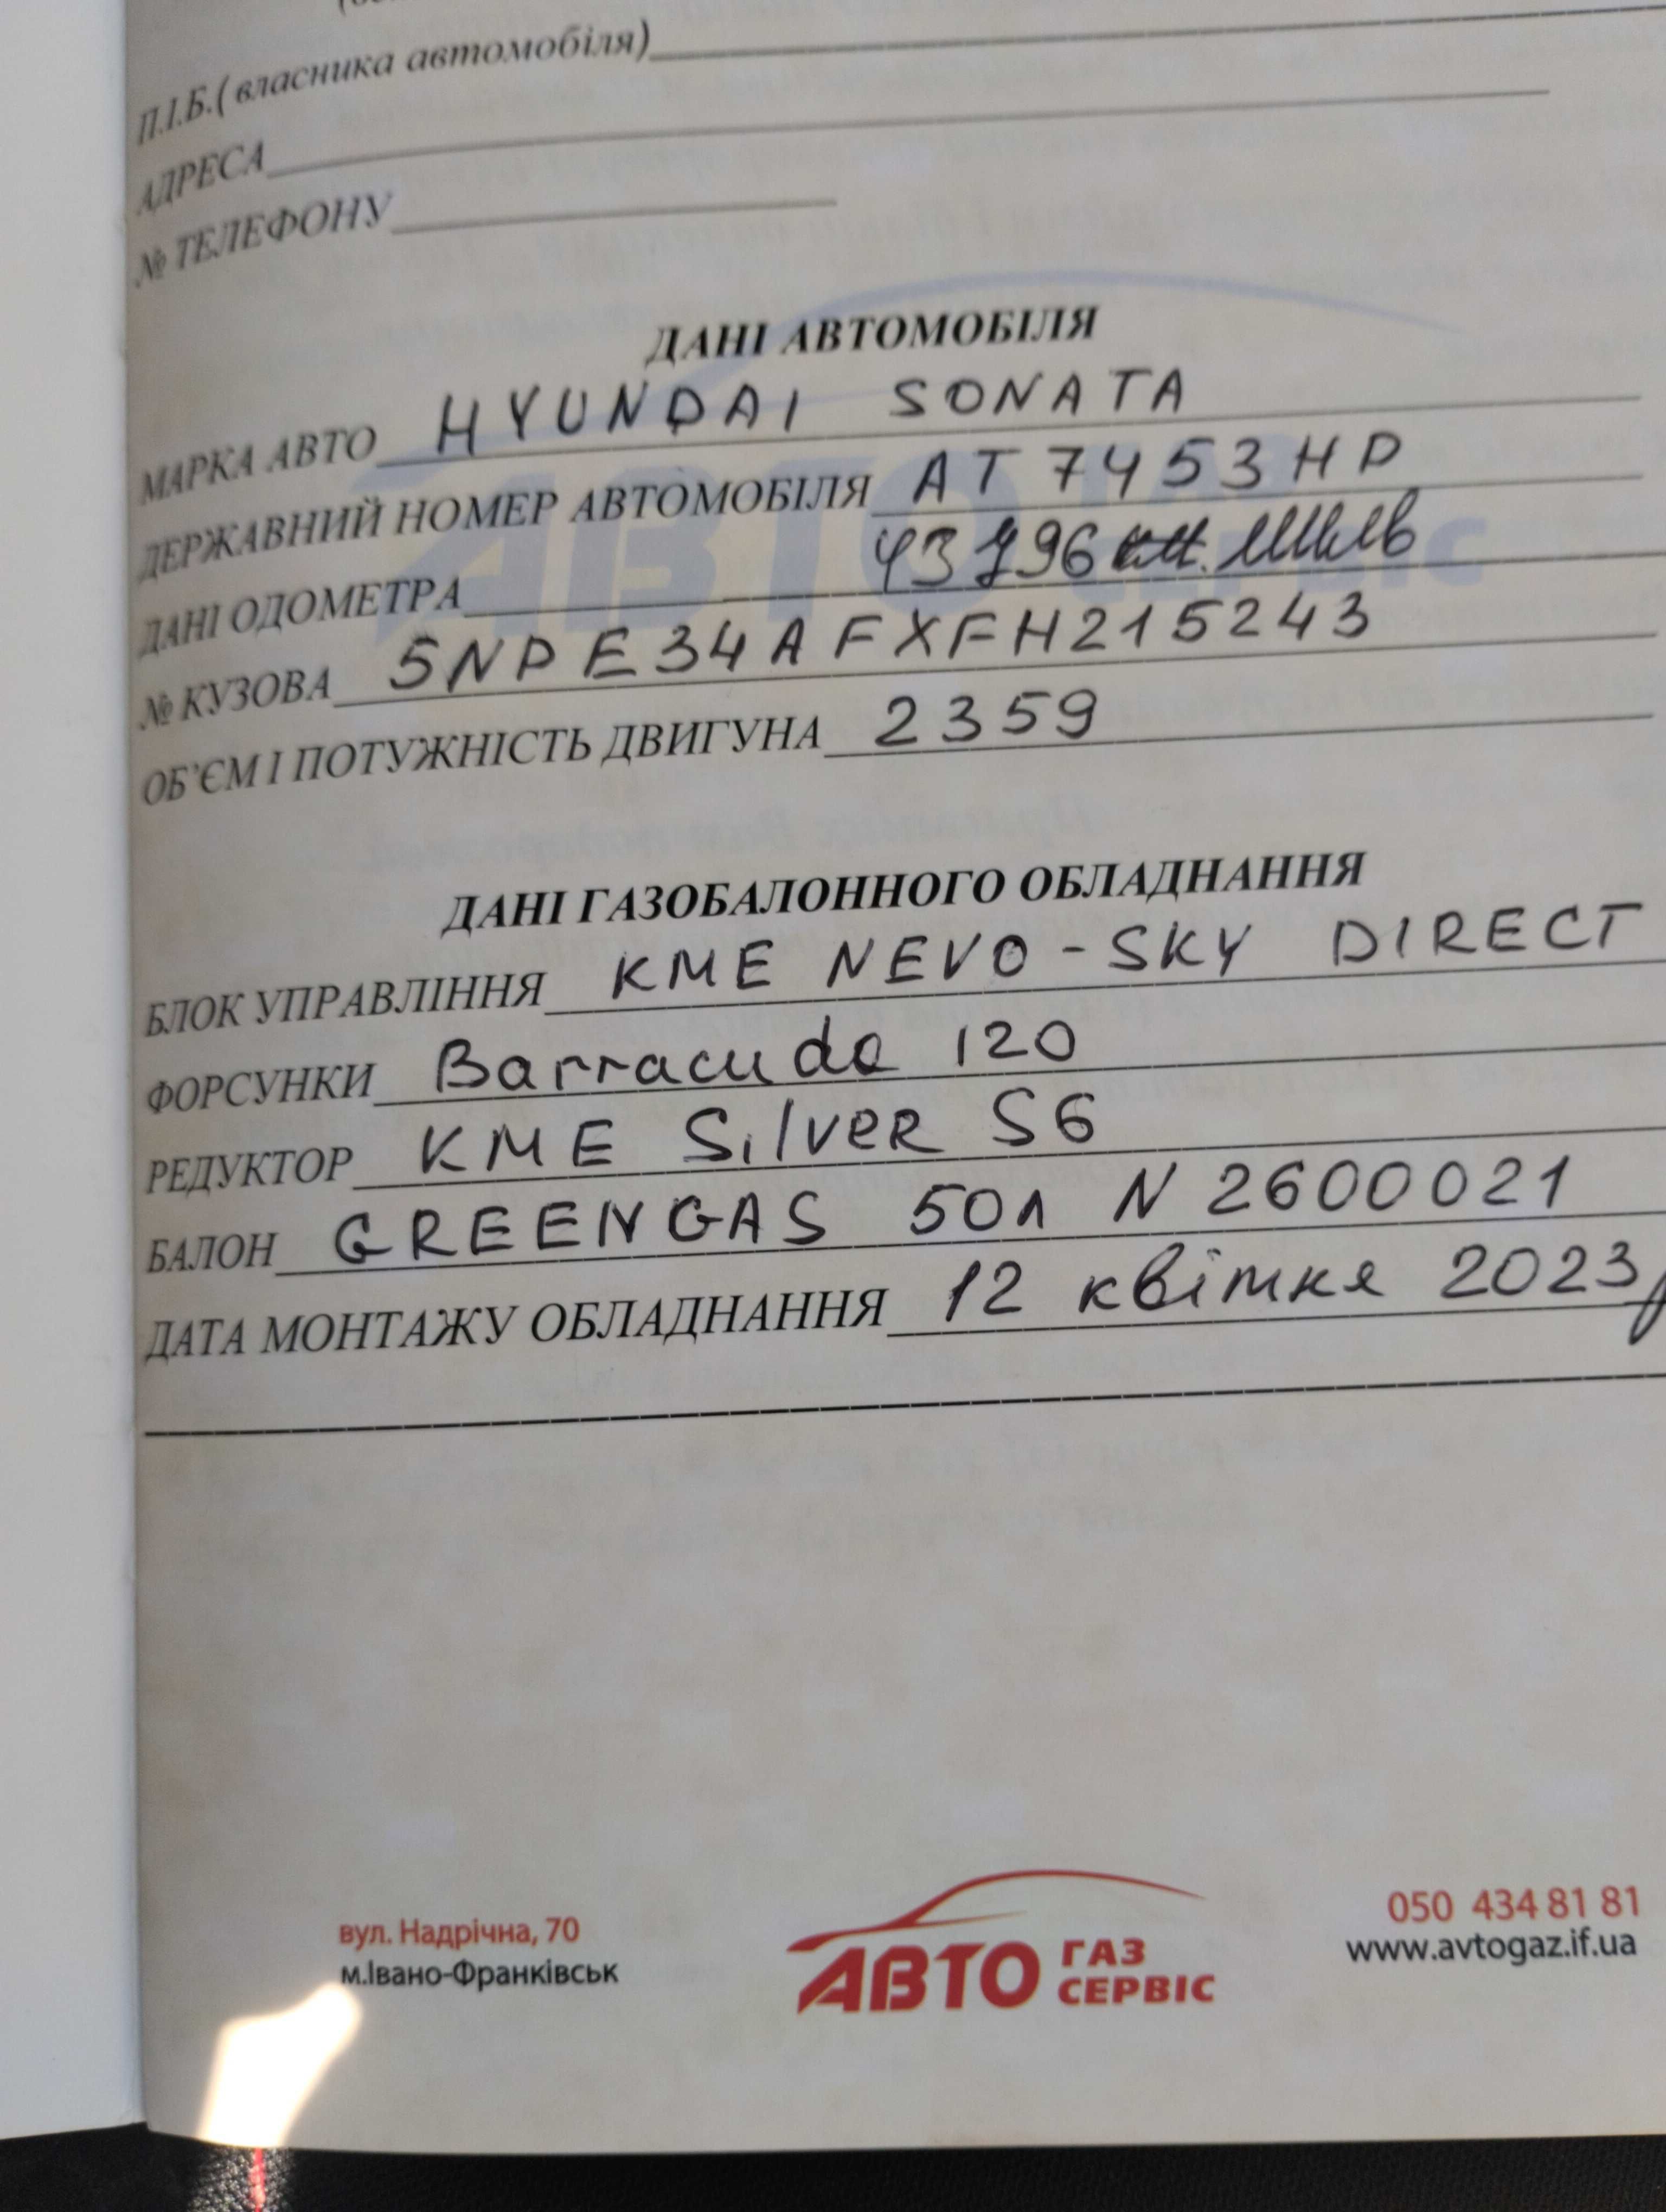 П.І.Б.( власника автомобіля)
АДРЕСА
№ ТЕЛЕФОНУ
ДАНІ АВТОМОБІЛЯ
МАРКА АВТО HYUNDAI SONATA
ДЕРЖАВНИЙ НОМЕР АВТОМОБІЛЯ AT 7453 HP
ДАНІ ОДОМЕТРА миль
№ КУЗОВА 5NPE34AFXFH215243
ОБ'ЄМ І ПОТУЖНІСТЬ ДВИГУНА 2359
ДАНІ ГАЗОБАЛОННОГО ОБЛАДНАННЯ
БЛОК УПРАВЛІННЯ KME NEVO - SKY DIRECT
ФОРСУНКИ Barracuda 120
РЕДУКТОР KME Silver S6
БАЛОН GREENGAS 50л N 2600021
ДАТА МОНТАЖУ ОБЛАДНАННЯ 12 квітня 2023р
вул. Надрічна, 70
м.Івано-Франківськ
АВТО ГАЗ СЕРВІС
050 434 81 81
www.avtogaz.if.ua